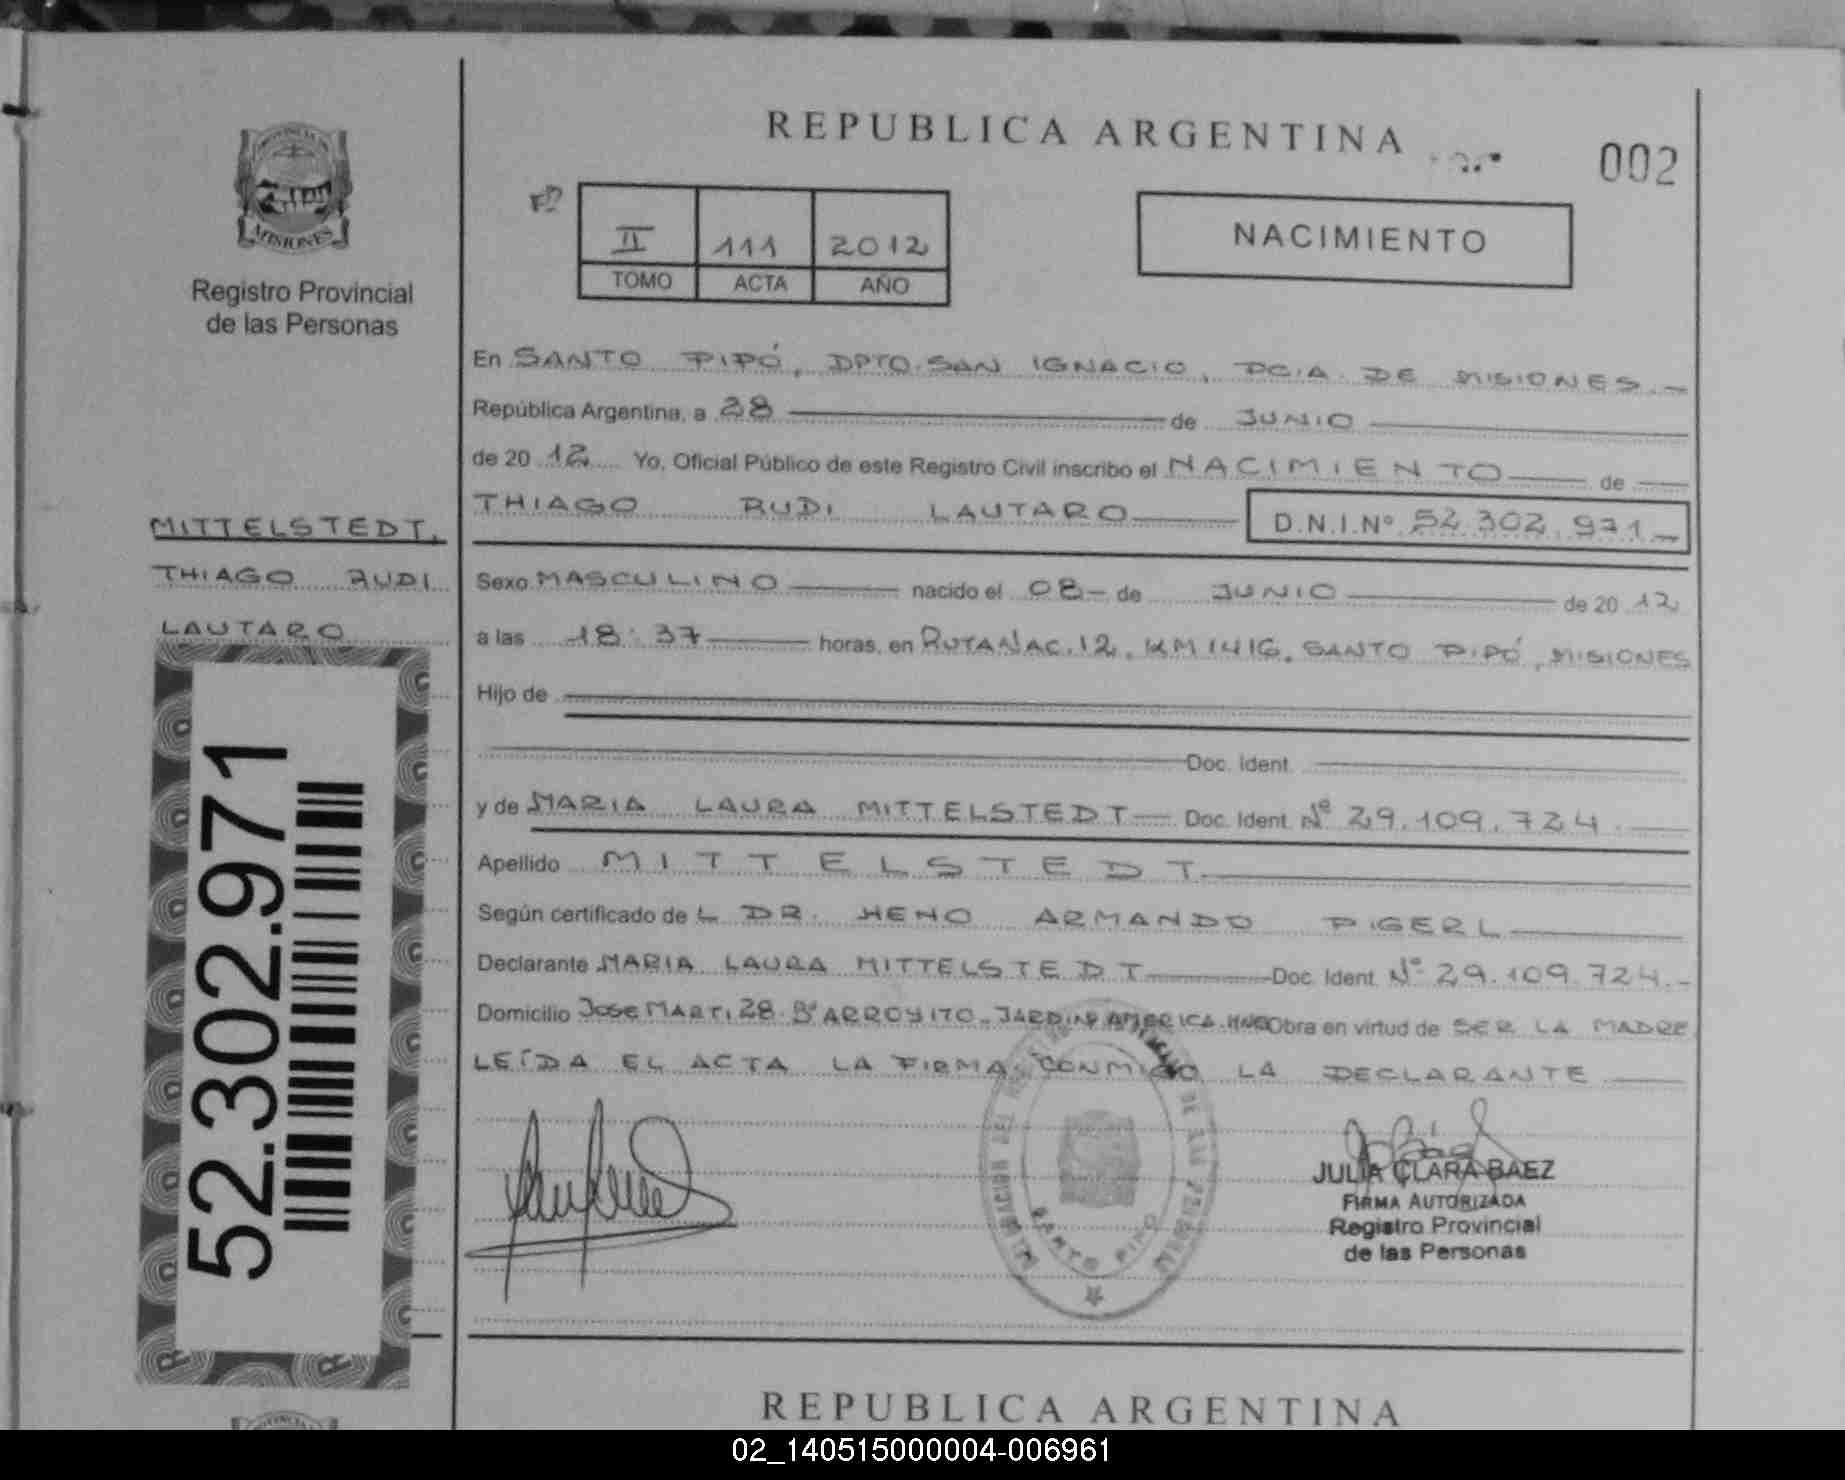 REPUBLICA ARGENTINA
002
PROVINCIA
MISIONES
Registro Provincial
de las Personas
II 111 2012
TOMO ACTA AÑO
NACIMIENTO
En SANTO PIPÓ, DPTO. SAN IGNACIO, PCIA. DE MISIONES.-
República Argentina, a 28 de JUNIO
de 20 12 Yo, Oficial Público de este Registro Civil inscribo el NACIMIENTO de
THIAGO RUDI LAUTARO D.N.I.Nº 52.302.971-
MITTELSTEDT,
THIAGO RUDI
LAUTARO
52.302.971
Sexo MASCULINO nacido el 08- de JUNIO de 20 12
a las 18:37 horas, en RUTA NAC. 12, KM 1416, SANTO PIPÓ, MISIONES
Hijo de
Doc. Ident.
y de MARIA LAURA MITTELSTEDT Doc. Ident. Nº 29.109.724.
Apellido MITTELSTEDT
Según certificado de L DR. HENO ARMANDO PIGERL
Declarante MARIA LAURA MITTELSTEDT Doc. Ident. Nº 29.109.724.-
Domicilio JOSE MARTI 28. Bº ARROYITO- JARDIN AMERICA. MNES Obra en virtud de SER LA MADRE
LEÍDA EL ACTA LA FIRMA CONMIGO LA DECLARANTE
SANTO PIPO
JULIA CLARA BAEZ
FIRMA AUTORIZADA
Registro Provincial
de las Personas
REPUBLICA ARGENTINA
02_140515000004-006961